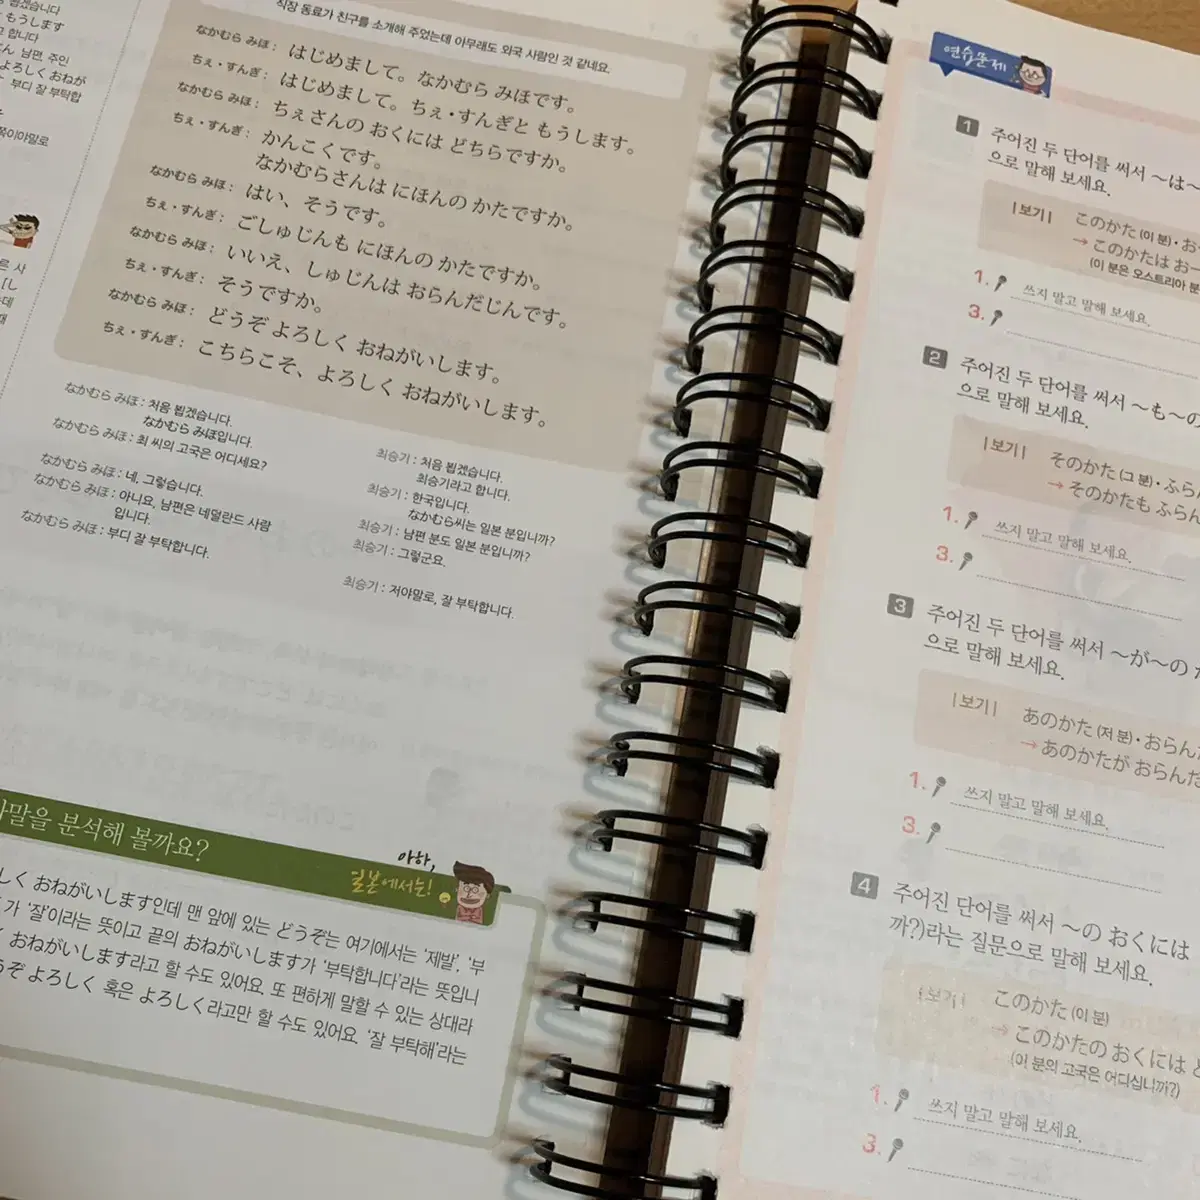 뵙겠습니다
もうします
고 합니다
さん 남편, 주인
よろしく おねが
부디 잘 부탁합
쪽이야말로
른 사
[し
는데
때
직장 동료가 친구를 소개해 주었는데 아무래도 외국 사람인 것 같네요.
なかむら みほ : はじめまして。なかむら みほです。
ちぇ・すんぎ : はじめまして。ちぇ・すんぎと もうします。
なかむら みほ : ちぇさんの おくには どちらですか。
ちぇ・すんぎ : かんこくです。
なかむらさんは にほんの かたですか。
なかむら みほ : はい、そうです。
ちぇ・すんぎ : ごしゅじんも にほんの かたですか。
なかむら みほ : いいえ、しゅじんは おらんだじんです。
ちぇ・すんぎ : そうですか。
なかむら みほ : どうぞ よろしく おねがいします。
ちぇ・すんぎ : こちらこそ、よろしく おねがいします。
なかむら みほ : 처음 뵙겠습니다.
なかむら みほ입니다.
なかむら みほ : 최 씨의 고국은 어디세요?
なかむら みほ : 네, 그렇습니다.
なかむら みほ : 아니요, 남편은 네덜란드 사람
입니다.
なかむら みほ : 부디 잘 부탁합니다.
최승기 : 처음 뵙겠습니다.
최승기라고 합니다.
최승기 : 한국입니다.
なかむら씨는 일본 분입니까?
최승기 : 남편 분도 일본 분입니까?
최승기 : 그렇군요.
최승기 : 저야말로, 잘 부탁합니다.
사말을 분석해 볼까요?
아하,
일본에서는!
しく おねがいします인데 맨 앞에 있는 どうぞ는 여기에서는 '제발', '부
가 '잘'이라는 뜻이고 끝의 おねがいします가 '부탁합니다'라는 뜻입니
く おねがいします라고 할 수도 있어요. 또 편하게 말할 수 있는 상대라
うぞ よろしく 혹은 よろしく라고만 할 수도 있어요. '잘 부탁해'라는
연습문제
1 주어진 두 단어를 써서 ～は～
으로 말해 보세요.
|보기| このかた (이 분)・お
→ このかたは おー
(이 분은 오스트리아 분
1. 쓰지 말고 말해 보세요.
3.
2 주어진 두 단어를 써서 ～も～の
으로 말해 보세요.
|보기| そのかた (그 분)・ふら
→ そのかたも ふらん
1. 쓰지 말고 말해 보세요.
3.
3 주어진 두 단어를 써서 ～が～の
으로 말해 보세요.
|보기| あのかた (저 분)・おらん
→ あのかたが おらんだ
1. 쓰지 말고 말해 보세요.
3.
4 주어진 단어를 써서 ～の おくには
까?)라는 질문으로 말해 보세요.
|보기| このかた (이 분)
→ このかたの おくには ど
(이 분의 고국은 어디십니까?)
1. 쓰지 말고 말해 보세요.
3.